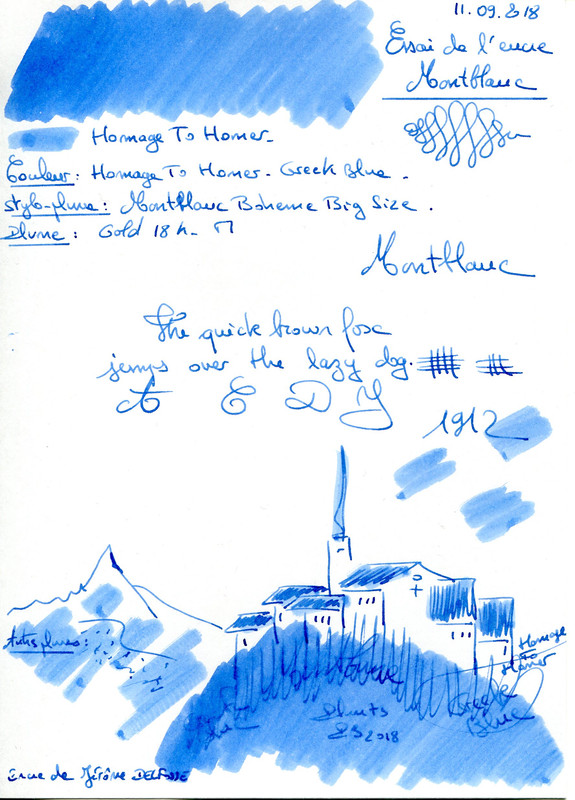 11.09.2018
Essai de l'encre
Montblanc
Homage To Homer
Couleur: Homage To Homer. Greek Blue.
Stylo-plume: Montblanc Boheme Big Size.
Plume: Gold 18 k. M
Montblanc
The quick brown fox
jumps over the lazy dog.
A E D Y
1912
Autres plumes:
Homage
To
Homer
Greek
Blue
2018
Encre de Jérôme